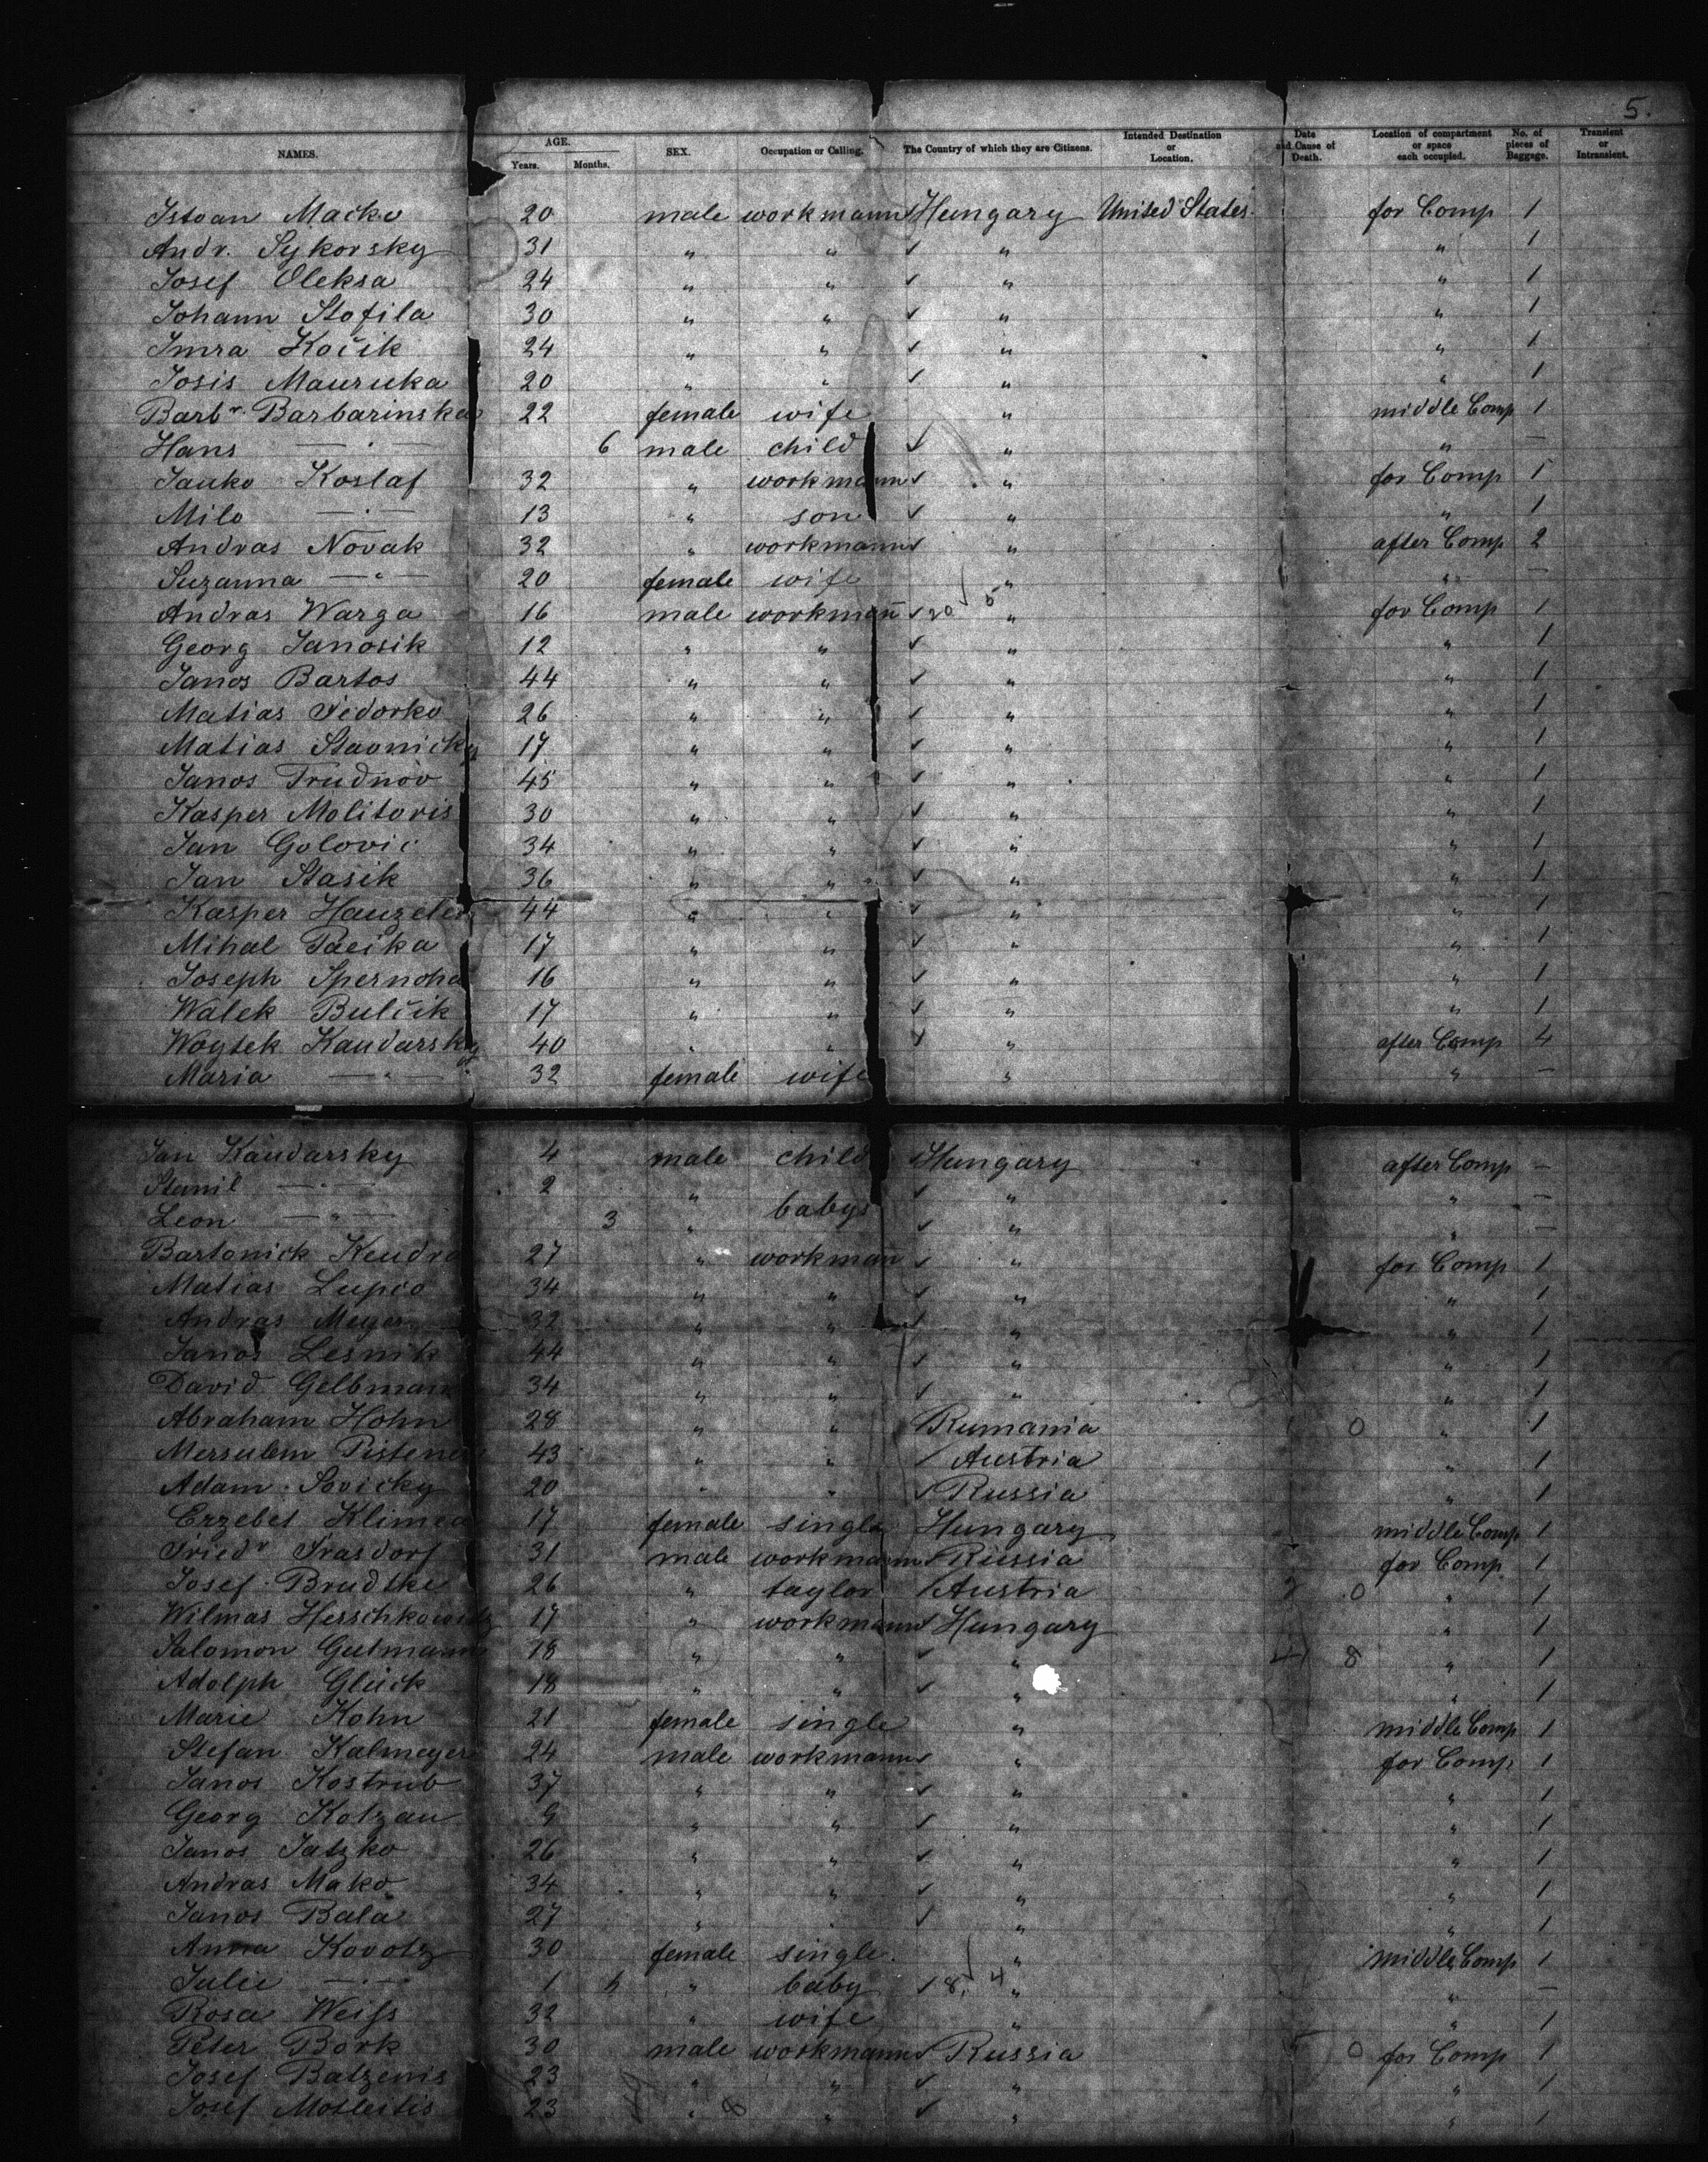 5.
NAMES. AGE. Years. Months. SEX. Occupation or Calling. The Country of which they are Citizens. Intended Destination or Location. Date and Cause of Death. Location of compartment or space each occupied. No. of pieces of Baggage. Transient or Intransient.
Istvan Macko 20 male workmann Hungary United States. for Comp 1
Andr. Sykorsky 31 " " ✓ " " 1
Josef Oleksa 24 " " ✓ " " 1
Johann Stofila 30 " " ✓ " " 1
Imra Kočik 24 " " ✓ " " 1
Josis Mauruka 20 " " ✓ " " 1
Barbr. Barbarinska 22 female wife " middle Comp 1
Hans — " — 6 male child ✓ " " —
Janko Koslaf 32 " workmann ✓ " for Comp 1
Milo — " — 13 " son ✓ " " 1
Andras Novak 32 " workmann ✓ " after Comp 2
Suzanna — " — 20 female wife " " —
Andras Warga 16 male workmañ ✓ 20 5 " for Comp 1
Georg Janosik 12 " " ✓ " " 1
Janos Bartos 44 " " ✓ " " 1
Matias Fedorko 26 " " ✓ " " 1
Matias Stavnicky 17 " " ✓ " " 1
Janos Trudnov 45 " " ✓ " " 1
Kasper Molitoris 30 " " ✓ " " 1
Jan Golovic 34 " " ✓ " " 1
Jan Stasik 36 " " ✓ " " 1
Kasper 44 " " ✓ " " 1
Mihal Pacika 17 " " ✓ " " 1
Joseph Spernoha 16 " " ✓ " " 1
Walek Bulčik 17 " " ✓ " " 1
Woytek Kaudarsky 40 " " ✓ " after Comp 4
Maria — " — 32 female wife " " —
Jan Kaudarsky 4 male child Hungary after Comp —
Stanil — " — 2 " ✓ " " —
babys
Leon — " — 3 " ✓ " " —
Bartonick Keudra 27 " workman ✓ " for Comp 1
Matias Lupco 34 " " ✓ " " 1
Andras Meyer 32 " " ✓ " " 1
Janos Lesnik 44 " " ✓ " " 1
David Gelbmann 34 " " ✓ " " 1
Abraham Hohn 28 " " Rumania 0 " 1
43 " " ✓ Austria " 1
Adam Sovicky 20 " " ✓ Russia " 1
Erzebet Klimea 17 female single Hungary middle Comp 1
Friedr Frasdorf 31 male workmann ✓ Russia for Comp 1
Josef Brudtke 26 " taylor ✓ Austria 0 " 1
Wilmas Herschkowitz 17 " workmann ✓ Hungary " 1
Salomon Gutmann 18 " " ✓ " 8 " 1
Adolph Glück 18 " " ✓ " " 1
Marie Kohn 21 female single " middle Comp 1
Stefan Kalmeyer 24 male workmann ✓ " for Comp 1
Janos Kostrub 37 " " ✓ " " 1
Georg Kotzau 9 " " ✓ " " 1
Janos Jatzko 26 " " ✓ " " 1
Andras Mako 34 " " ✓ " " 1
Janos Bala 27 " " ✓ " " 1
Anna Kovotz 30 female single " middle Comp 1
Julie — " — 1 " baby ✓ 8 4 " " —
Rosa Weiſs 32 " wife " " 1
Peter Bork 30 male workmann ✓ Russia 0 for Comp 1
Josef Batzenis 23 " " ✓ " " 1
Josef Motleitis 23 " " ✓ " " 1